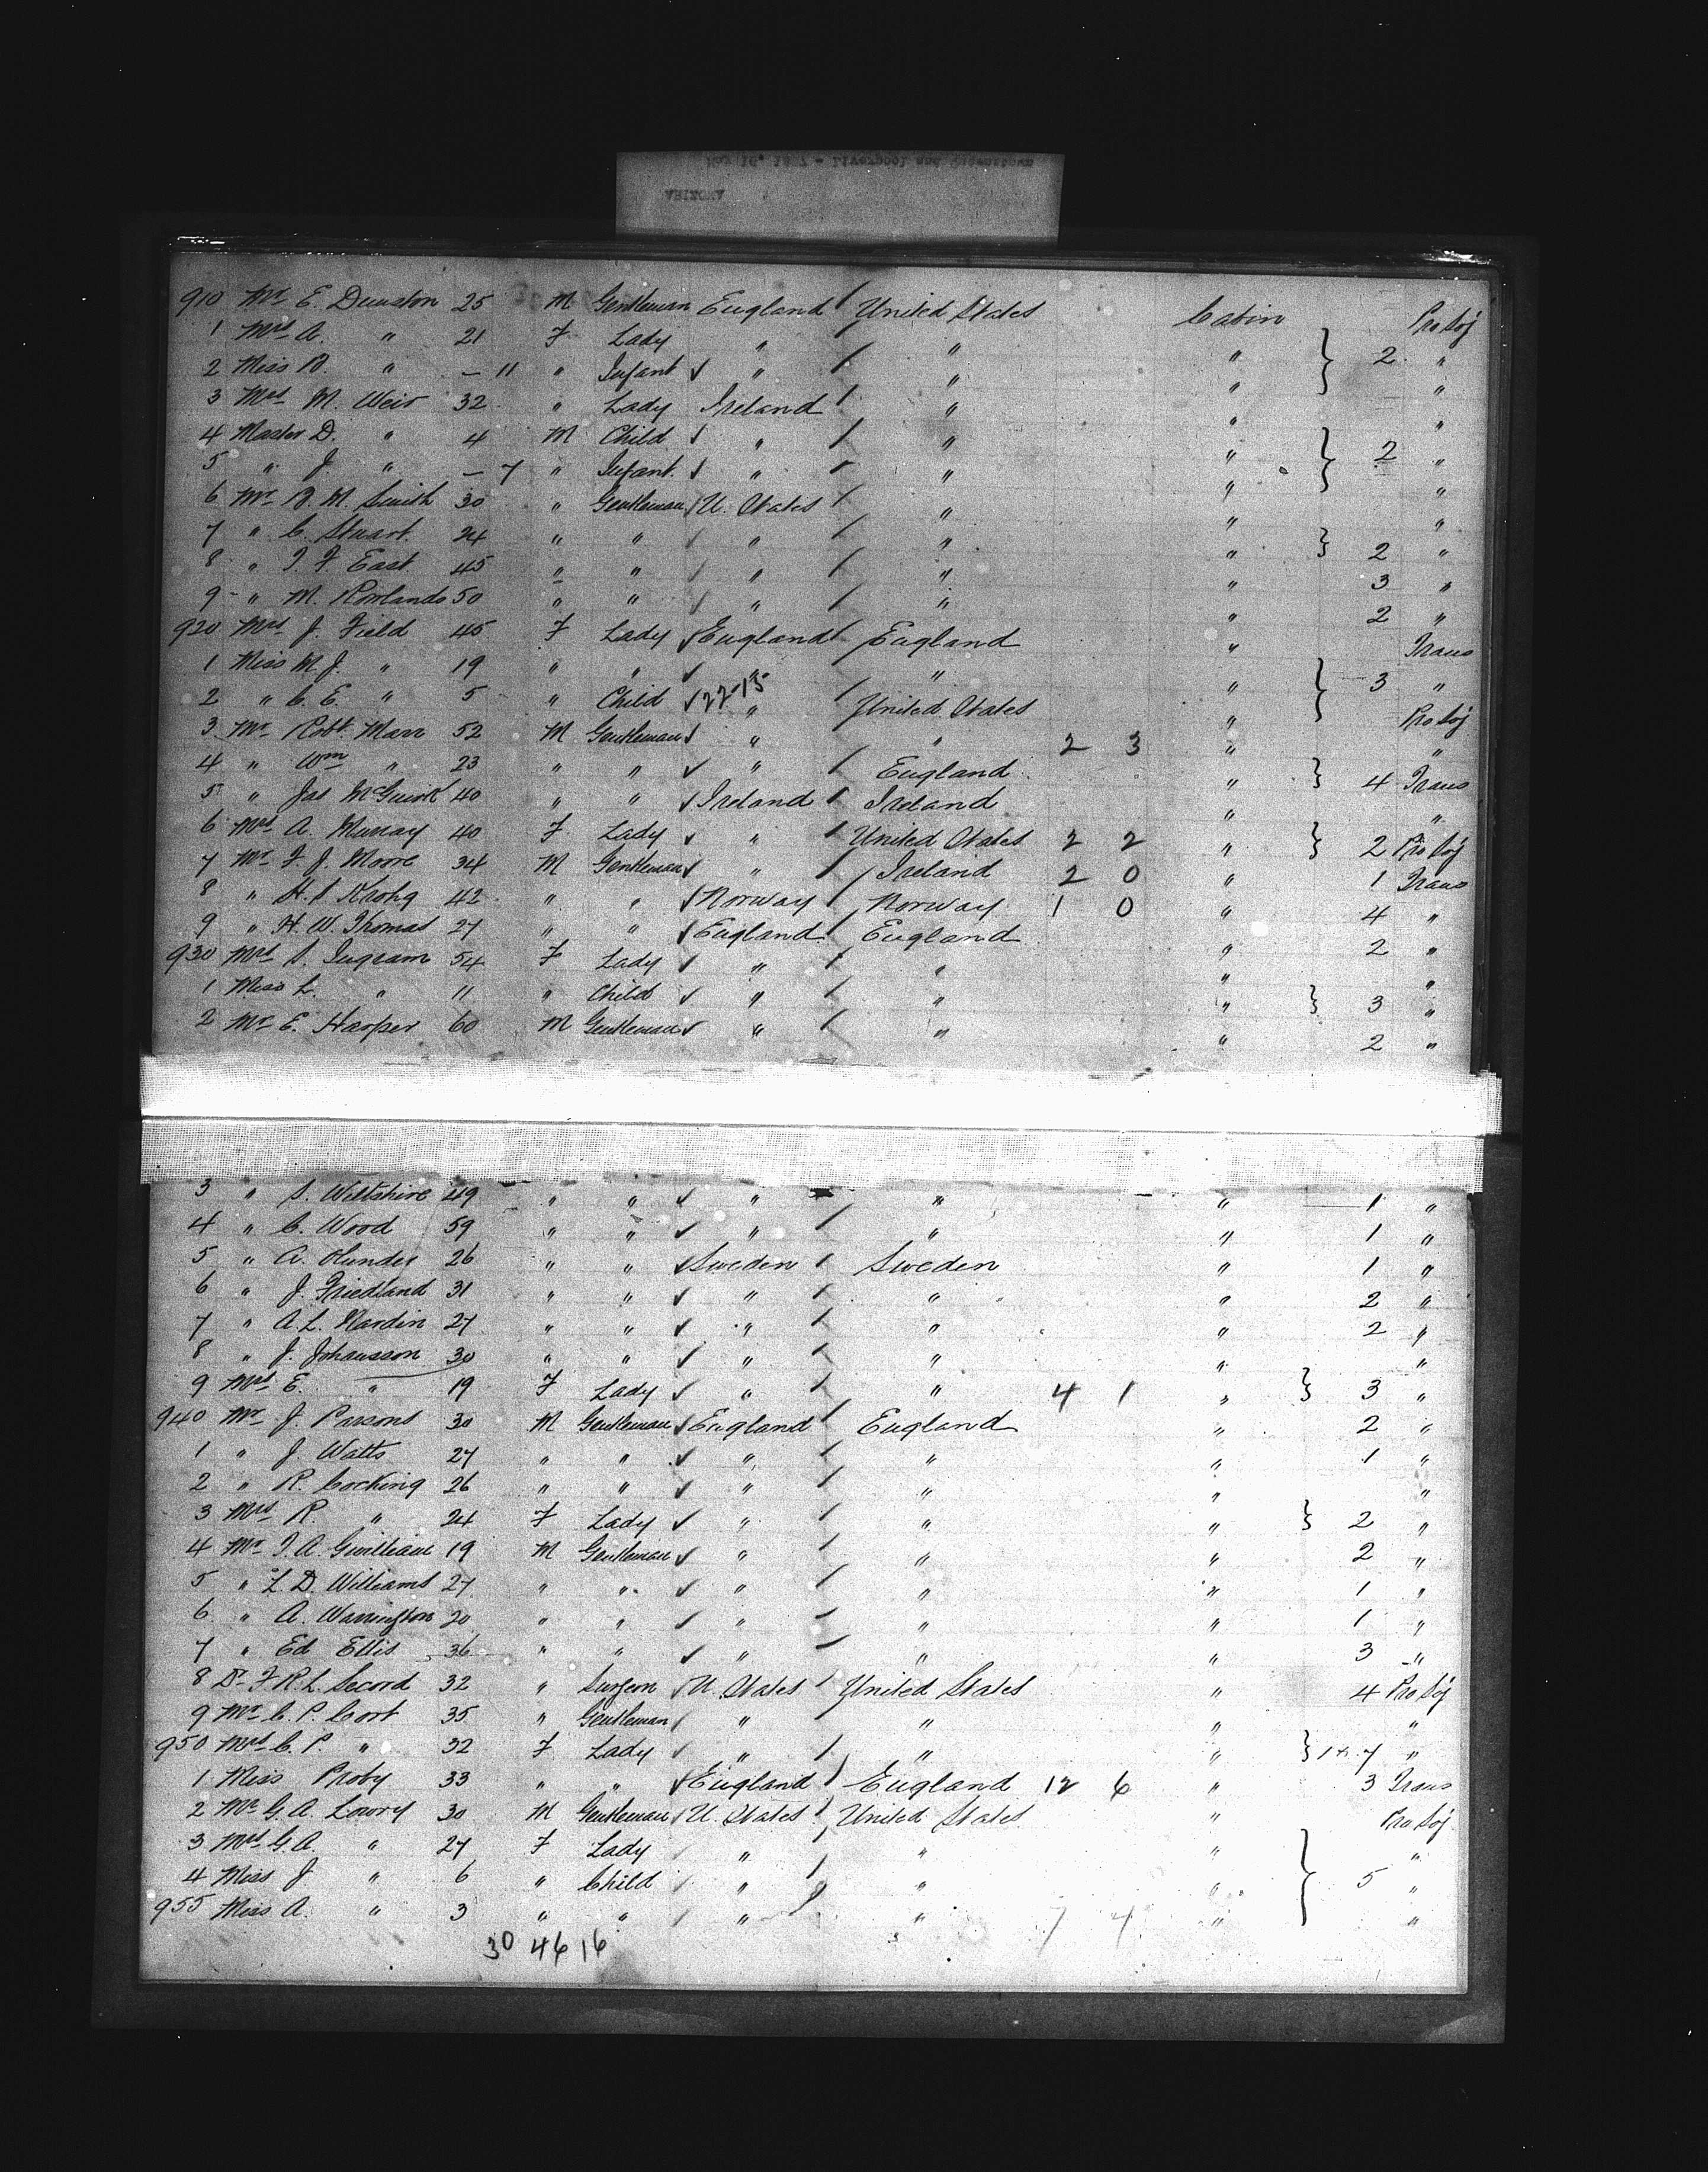 May 16, 1887 - Liverpool and Queenstown
ARIZONA
910 Mr E. Dunston 25 M Gentleman England / United States Cabin Pro Soj
1 Mrs A. " 21 F Lady " / " " } 2 "
2 Miss B. " - 11 " Infant ✓ " / " " "
3 Mrs M. Weir 32 " Lady Ireland / " " "
4 Master D. " 4 M Child ✓ " / " " } 2 "
5 " J " - 7 " Infant ✓ " / " " "
6 Mr B. M. Smith 30 " Gentleman / U. States / " " "
7 " C. Stuart 24 " " ✓ " / " " } 2 "
8 " J F East 45 " " / " / " " 3 "
9 " M. Rowlands 50 " " / " / " " 2 "
920 Mrs J. Field 45 F Lady ✓ England / England " Trans
1 Miss M. J. " 19 " " ✓ " " } 3 "
2 " C. E. " 5 " Child ✓ 22-15 " / United States " Pro Soj
3 Mr Robt Marr 52 M Gentleman ✓ " " 2 3 " "
4 " Wm " 23 " " ✓ " / England " } 4 Trans
5 " Jas McGuirk 40 " " ✓ Ireland / Ireland " "
6 Mrs A. Murray 40 F Lady ✓ " / United States 2 2 " } 2 Pro Soj
7 Mr F. J. Moore 34 M Gentleman ✓ " / Ireland 2 0 " 1 Trans
8 " H. S Krohg 42 " " ✓ Norway / Norway 1 0 " 4 "
9 " H. W. Thomas 27 " " ✓ England / England " 2 "
930 Mrs S. Ingram 54 F Lady ✓ " / " " "
1 Miss L. " 11 " Child ✓ " / " " } 3 "
2 Mr E. Harper 60 M Gentleman ✓ " / " " 2 "
3 " S. Wiltshire 49 " " ✓ " " " 1 "
4 " C. Wood 59 " " ✓ " / " " 1 "
5 " A. 26 " " ✓ Sweden / Sweden " 1 "
6 " J. Friedland 31 " " ✓ " / " " 2 "
7 " A. L. Nardin 27 " " ✓ " / " " 2 "
8 " J. Johansson 30 " " ✓ " / " " "
9 Mrs E. " 19 F Lady ✓ " / " 4 1 " } 3 "
940 Mr J. Parsons 30 M Gentleman ✓ England / England " 2 "
1 " J. Watts 27 " " ✓ " / " " 1 "
2 " R. Cocking 26 " " ✓ " / " " "
3 Mrs R. " 24 F Lady ✓ " / " " } 2 "
4 Mr J. A. Gwilliam 19 M Gentleman ✓ " / " " 2 "
5 " L. D. Williams 27 " " ✓ " / " " 1 "
6 " A. Warrington 20 " " ✓ " / " " 1 "
7 " Ed Ellis 36 " " ✓ " / " " 3 "
8 Dr F. R. L. Secord 32 " Surgeon ✓ U. States / United States " 4 Pro Soj
9 Mr C. P. Cort 35 " Gentleman / " " " "
950 Mrs C. P. " 32 F Lady ✓ " / " " } 7 "
1 Miss Proby 33 " " ✓ England / England 12 6 " 3 Trans
2 Mr G. A. Lowry 30 M Gentleman ✓ U. States / United States " Pro Soj
3 Mrs G. A. " 27 F Lady / " / " " "
4 Miss J " 6 " Child / " / " " } 5 "
955 Miss A. " 3 " " / " " 7 4 " "
30 46 16